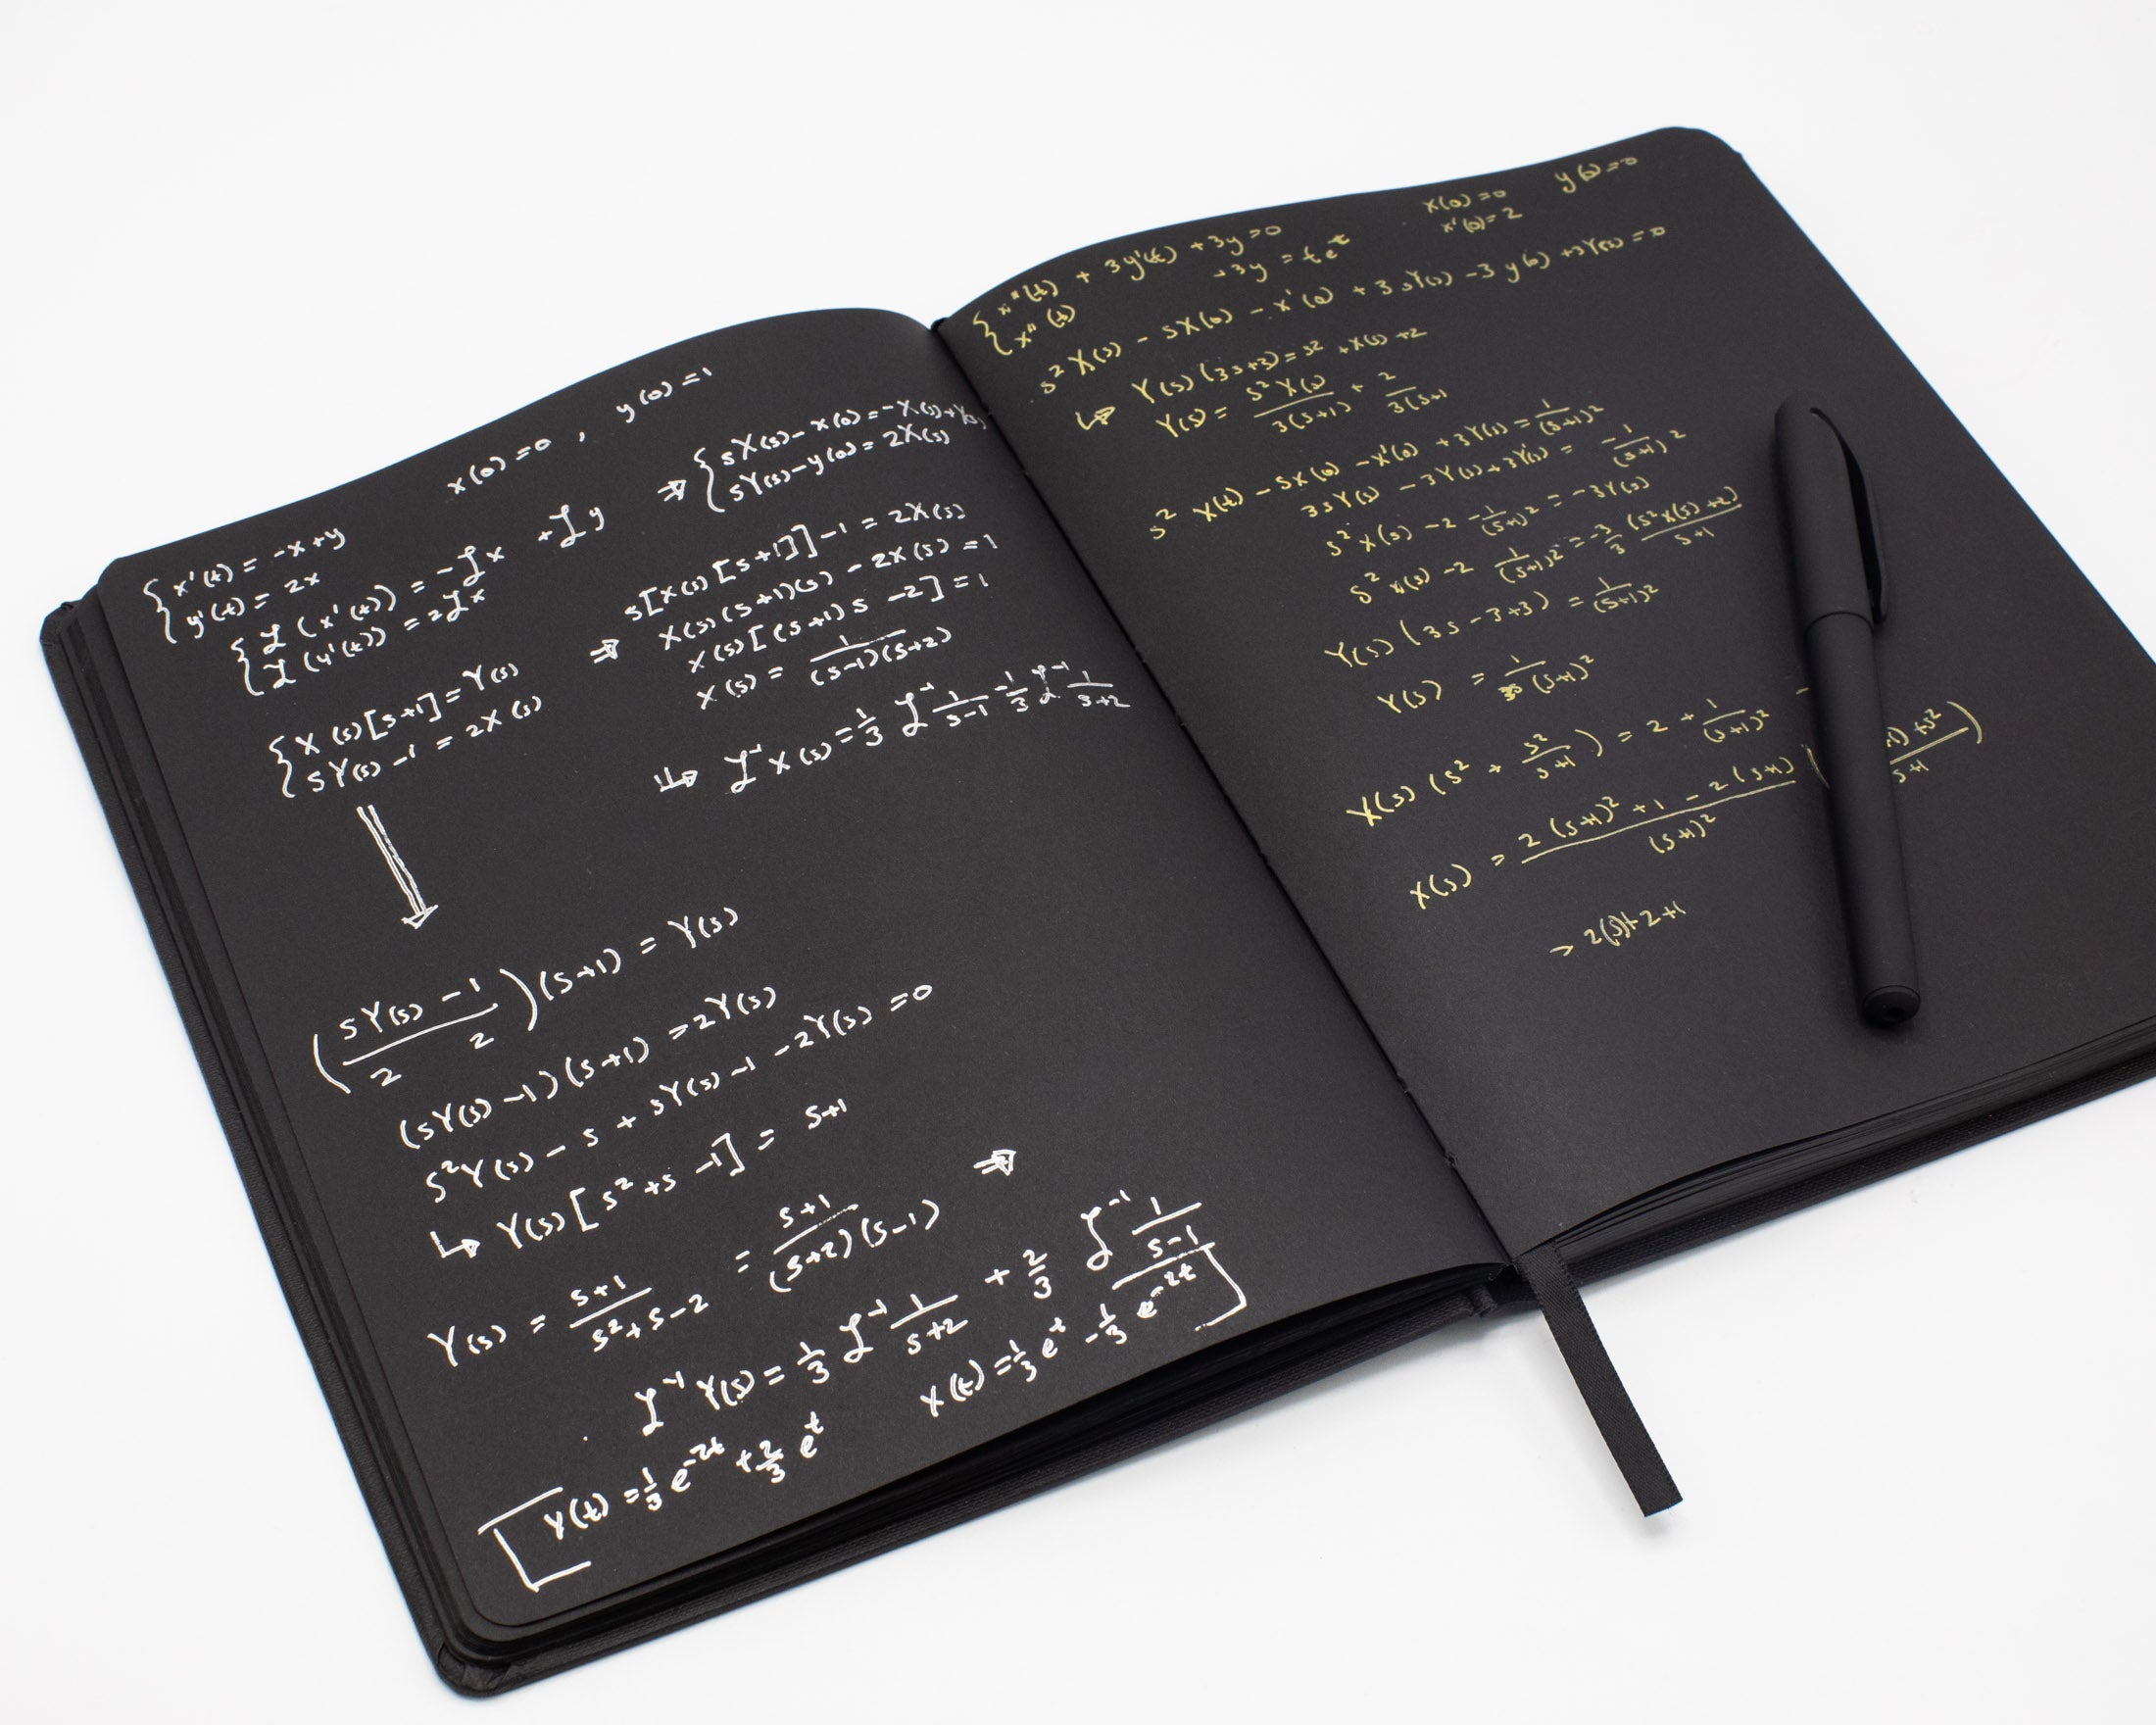 x(0)=0 , y(0)=1
{ x'(t) = -x+y
y'(t) = 2x
{ ℒ(x'(t)) = -ℒx +ℒy
ℒ(y'(t)) = 2ℒx
⇒ { sX(s)-x(0)=-X(s)+Y(s)
sY(s)-y(0)=2X(s)
{ X(s)[s+1]=Y(s)
sY(s)-1 = 2X(s)
⇒ s[X(s)[s+1]]-1 = 2X(s)
X(s)(s+1)(s) - 2X(s) = 1
X(s)[(s+1)s -2] = 1
X(s) = 1/((s-1)(s+2))
↳ ℒ⁻¹ X(s) = 1/3 ℒ⁻¹ 1/(s-1) - 1/3 ℒ⁻¹ 1/(s+2)
((sY(s) -1)/2 2)(s+1) = Y(s)
(sY(s) -1)(s+1) = 2Y(s)
s²Y(s) - s + sY(s) -1 -2Y(s) = 0
↳ Y(s)[s²+s -1] = s+1
Y(s) = (s+1)/(s²+s-2) = (s+1)/((s+2)(s-1)) ⇒
ℒ⁻¹ Y(s) = 1/3 ℒ⁻¹ 1/(s+2) + 2/3 ℒ⁻¹ 1/(s-1)
Y(t) = 1/3 e^-2t + 2/3 e^t
X(t) = 1/3 e^t - 1/3 e^-2t
x(0)=0 y(0)=0
x'(0)=2
{ x''(t) + 3y'(t) +3y =0
x''(t) +3y = te^t
s²X(s) - sX(0) - x'(0) + 3sY(s) -3y(0) +3Y(s) =0
↳ Y(s)(3s+3) = s² +X(s) +2
Y(s) = s²X(s)/3(s+1) + 2/3(s+1
s² X(t) - sX(0) -x'(0) +3Y(s) = 1/(s+1)²
3sY(s) -3Y(s)+3Y(s) = -1/(s+1)²
s² X(s) -2 -1/(s+1)² = -3Y(s)
s² X(s) -2 1/(s+1)² = -3/3 (s²X(s)+2)/(s+1)
Y(s)(3s-3+3) = 1/(s+1)²
Y(s) = 1/(s+1)²
X(s)(s² + s²/(s+1)) = 2 + 1/(s+1)² -
X(s) = (2(s+1)²+1 -2(s+1))/(s+1)² ( 1)+s²/(s+1) )
→ 2(s)+2+1